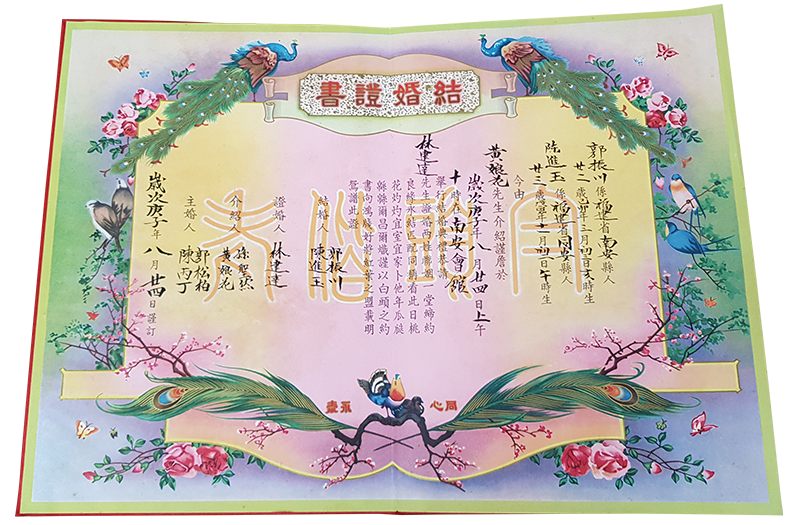 結婚證書
郭振川係福建省南安縣人
廿二歲 年三月四日亥時生
陳進玉係福建省同安縣人
廿三歲 年十一月 四日午時生
今由
黃娘花先生介紹謹詹於
歲次庚子年八月廿四日上午
十時在南安會館
舉行結婚典禮恭請
林建達先生證婚兩姓聯姻一堂締約
良緣永結匹配同稱看此日桃
花灼灼宜室宜家卜他年瓜瓞
緜緜爾昌爾熾謹以白頭之約
書向鴻箋好將紅葉之盟載明
鴛譜此證
結婚人 郭振川
陳進玉
證婚人 林建達
介紹人 孫 然
黃娘花
主婚人 郭松柏
陳丙丁
歲次庚子年八月廿四日謹訂
同心